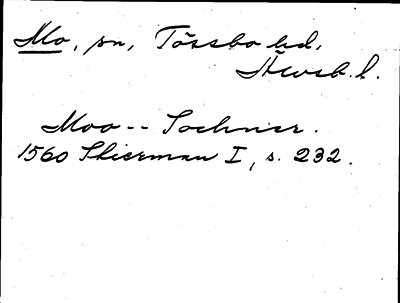 Mo, sn, Tössbo hd,
Älvsb. l.
Moo -- Sochner.
1560 Skierman I, s. 232.